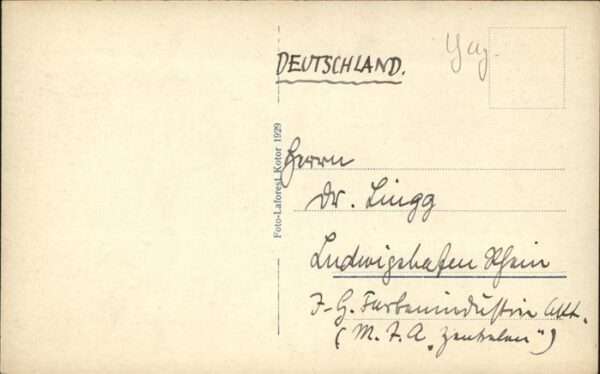 DEUTSCHLAND.
Foto-Laforest Kotor 1929
Herrn
Dr. Lingg
Ludwigshafen Rhein
I-G. Farbenindustrie Akt.
(M. F. A „Zentralen")